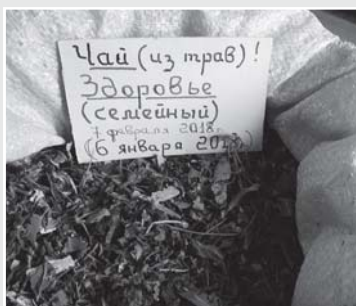 Чай (из трав) !
Здоровье
(семейный)
7 февраля 2018г.
(6 января